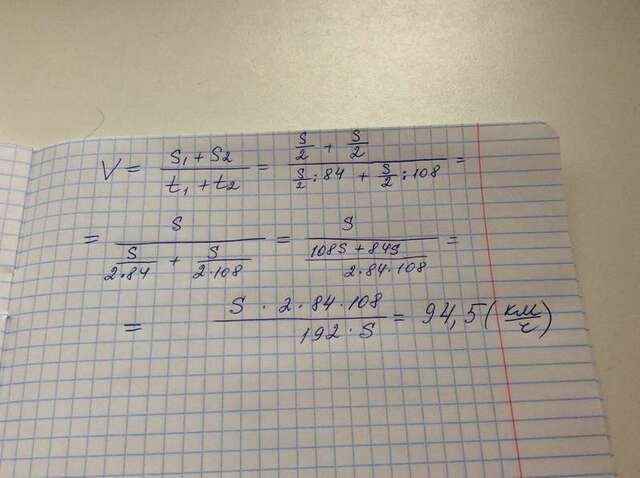 V = (S₁ + S₂)/(t₁ + t₂) = (S/2 + S/2)/(S/2 : 84 + S/2 : 108) =
= S/(S/(2·84) + S/(2·108)) = S/((108S + 84S)/(2·84·108)) =
= (S · 2 · 84 · 108)/(192 · S) = 94,5 (км/ч)